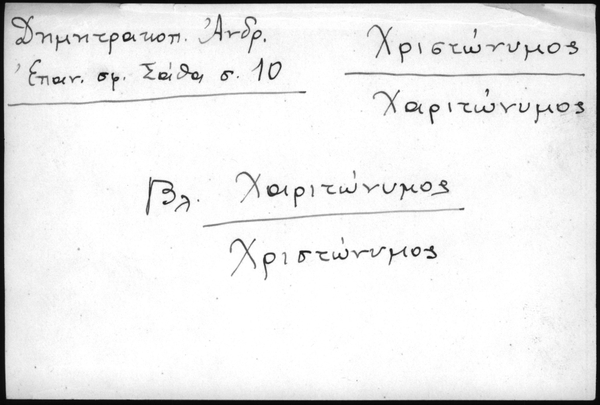 Δημητρακοπ. Ἀνδρ.
Ἐπαν. σφ. Σάθα σ. 10
Χριστώνυμος
Χαριτώνυμος
Βλ. Χαριτώνυμος
Χριστώνυμος